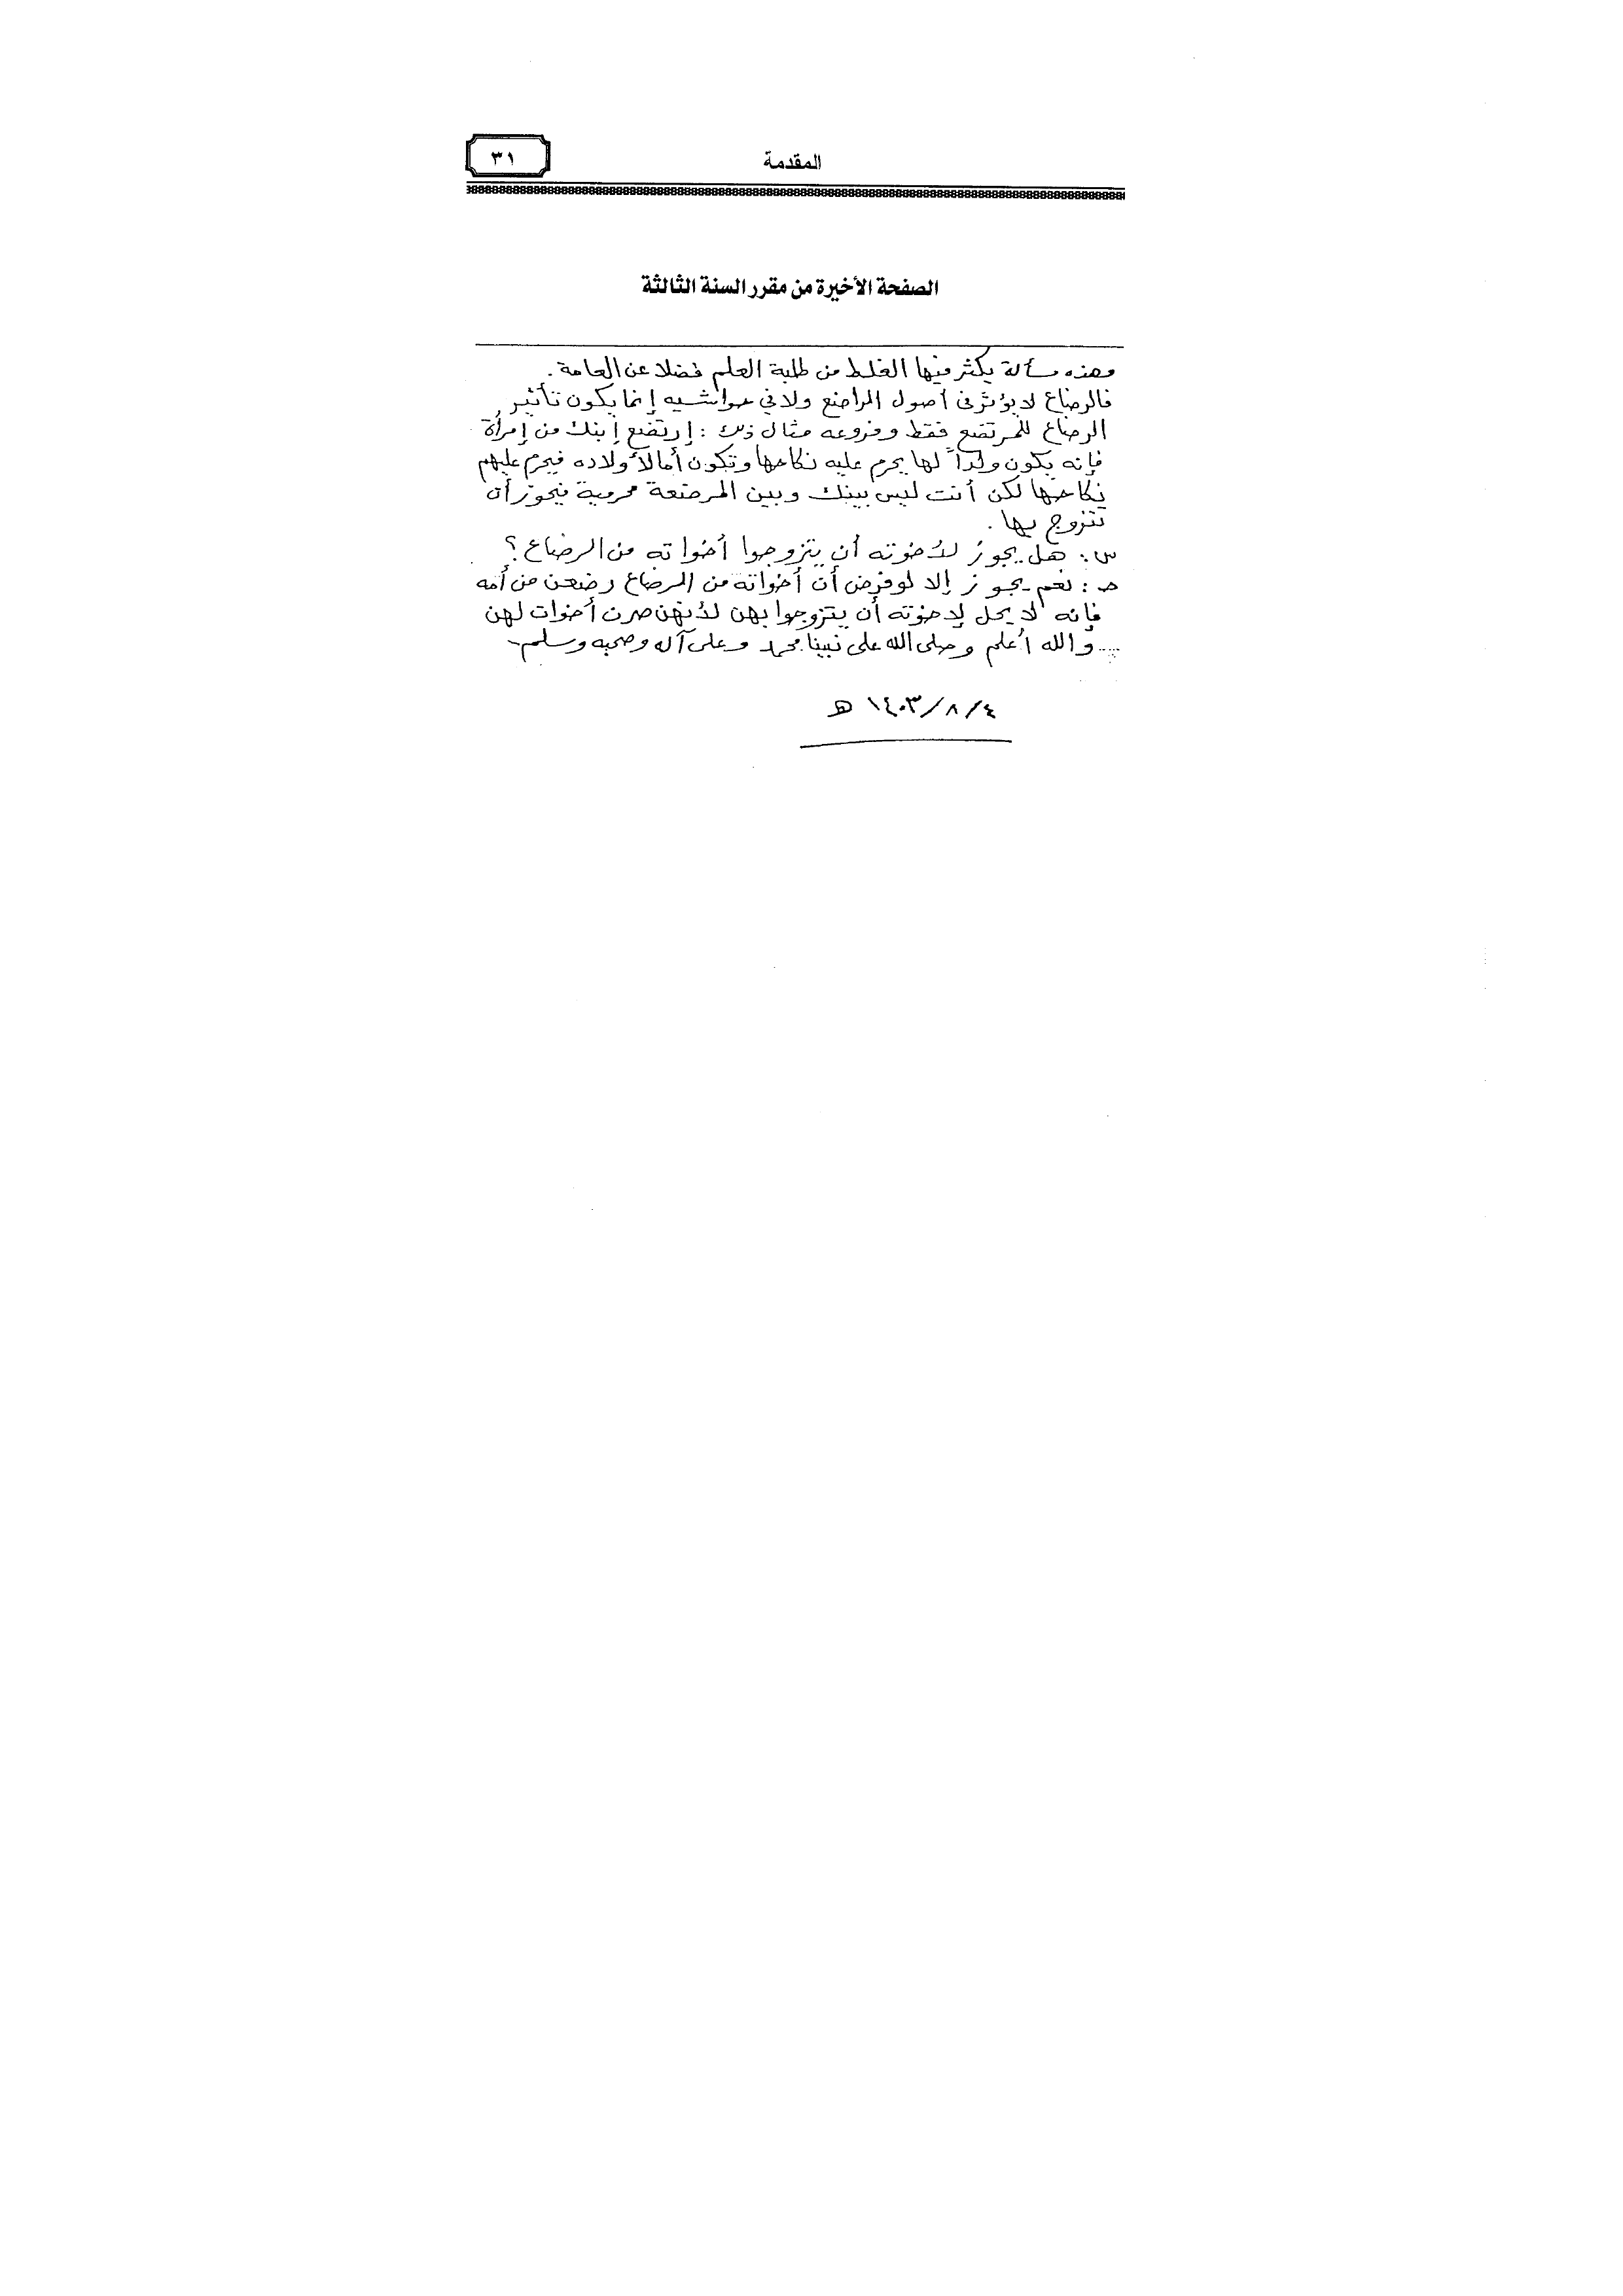 المقدمة
٣١
الصفحة الأخيرة من مقرر السنة الثالثة
وهذه مسألة يكثر فيها الغلط من طلبة العلم فضلا عن العامة.
فالرضاع لا يؤثر في أصول الراضع ولا في حواشيه إنما يكون تأثير
الرضاع للمرتضع فقط وفروعه مثال ذلك : إرتضع إبنك من إمرأة
فإنه يكون ولداً لها يحرم عليه نكاحها وتكون أما لأولاده فيحرم عليهم
نكاحها لكن أنت ليس بينك وبين المرضعة محرمية فيجوز أن
تتزوج بها .
س : هل يجوز لأخوته أن يتزوجوا أخواته من الرضاع ؟
جـ : نعم يجوز إلا لو فرض أن أخواته من الرضاع رضعن من أمه
فإنه لا يحل لإخوته أن يتزوجوا بهن لأنهن صرن أخوات لهن
والله أعلم وصلى الله على نبينا محمد وعلى آله وصحبه وسلم
٤/٨/١٤٠٣ هـ